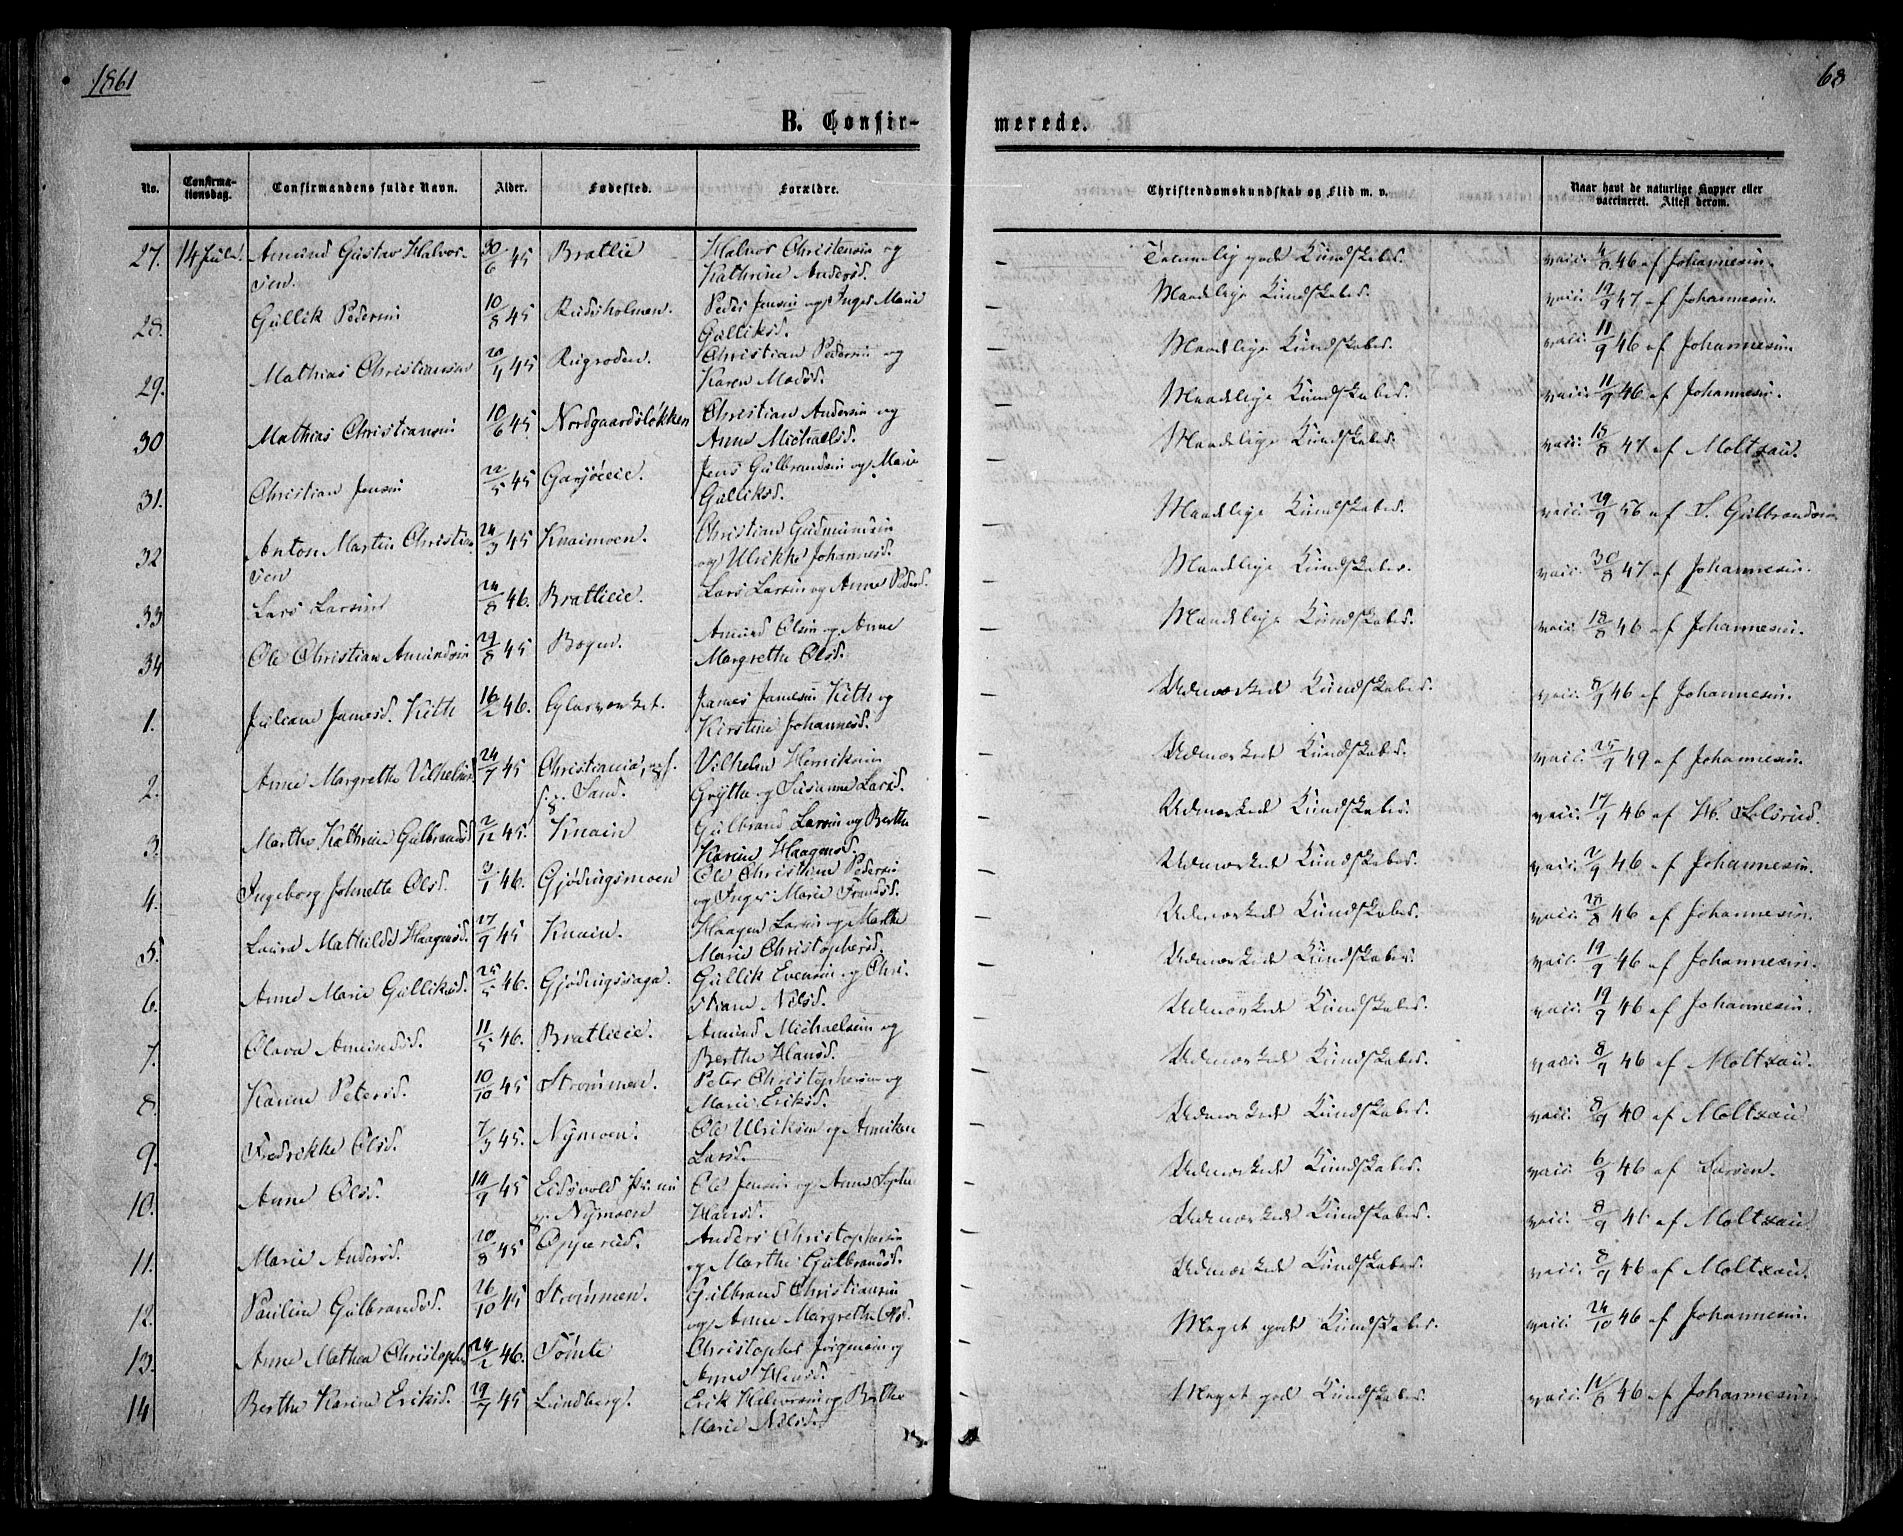 1861
68
B. Confirmerede.
No. Confirmationsdag. Confirmandens fulde Navn. Alder. Fødested. Forældre. Christendomskundskab og Flid m. v. Naar havt de naturlige Kopper eller vaccineret. Attest derom.
27. 14 Juli. Amund Gustav Halvorsen. 30/6 45 Bratlie Halvor Christensen og Kathrine Andersd. – Temmelig gode Kundskaber. vacc. 4/8 46 af Johannesen.
28. Gullik Pedersen 10/8 45 Peder Jensen og Inger Marie Gulliksd. – Maadelige Kundskaber. vacc. 19/9 47 af Johannesen.
29. Mathias Christiansen 20/4 45 Rugroden. Christian Pedersen og Karen Madsd. – Maadelige Kundskaber. vacc. 11/9 46 af Johannesen
30 Mathias Christiansen 10/6 45. Nordgaardsløkken Christian Andersen og Anne Michaelsd. – Maadelige Kundskaber. vacc. 11/9 46 af Johannesen.
31. Christian Jensen 22/5 45 Garsjøeie. Jens Gulbrandsen og Marie Gulliksd. – Maadelige Kundskaber. vacc. 18/8 47 af Moltzau.
32 Anton Martin Christiansen 24/3 45 Knaimoen. Christian Gudmundsen og Ulrikke Johannesd. – Maadelige Kundskaber. vacc. 29/9 56 af S. Gulbrandsen
33 Lars Larsen 24/8 46. Bratlieie. Lars Larsen og Anne Pedersd. – Maadelige Kundskaber. vacc. 30/8 47 af Johannesen.
34 Ole Christian Amundsen 29/8 45 Amund Olsen og Anne Margrethe Olsd. – Maadelige Kundskaber. vacc. 18/8 46 af Johannesen.
1. Juliane Jamesd. Keith 16/2 46. Glasværket. James Jamesen Keith og Kirstine Johannesd. – Udmærkede Kundskaber. vacc. 8/9 46 af Johannesen.
2. Anne Margrethe Vilhelmsd. 24/7 45 Christiania, Sand. Vilhelm Henriksen Grythe og Susanne Larsd. – Udmærkede Kundskaber. vacc. 25/9 49 af Johannesen.
3. Marthe Kathrine Gulbrandsd. 2/12 45. Knain Gulbrand Larsen og Berthe Karine Haagensd. – Udmærkede Kundskaber. vacc. 17/9 46 af H. Folsrud.
4. Ingeborg Johnette Olsd. 3/1 46. Gjødingsmoen Ole Christian Pedersen og Inger Marie Frandsd. – Udmærkede Kundskaber. vacc. 2/9 46 af Johannesen.
5. Laura Mathilde Haagensd. 27/9 45 Knain. Haagen Larsen og Marthe Marie Christophersd. – Udmærkede Kundskaber. vacc. 28/8 46 af Johannesen.
6. Anne Marie Gulliksd. 25/5 46. Gjødingssaga. Gullik Evensen og Christiane Nilsd. – Udmærkede Kundskaber. vacc. 19/9 46 af Johannesen.
7. Olava Amundsd. 11/5 46. Bratlieie. Amund Michaelsen og Berthe Hansd. – Udmærkede Kundskaber. vacc. 19/9 46 af Johannesen.
8. Karine Petersd. 10/10 45 Strømmen. Peter Christophersen og Marie Eriksd. – Udmærkede Kundskaber. vacc. 8/9 46 af Moltzau.
9. Fredrikke Olsd. 7/3 45. Nymoen. Ole Ulriksen og Anniken Larsd. – Udmærkede Kundskaber. vacc. 8/9 40 af Moltzau
10. Anne Olsd. 14/9 45 Eidsvold Nymoen Ole Jensen og Anne Sophie Hansd. – Udmærkede Kundskaber. vacc. 6/9 46 af Larsen.
11. Marie Andersd. 20/8 45 Opperud. Anders Christophersen og Marthe Gulbrandsd. – Udmærkede Kundskaber. vacc. 8/9 46 af Moltzau
12. Pauline Gulbrandsd. 26/10 45 Strømmen. Gulbrand Christiansen og Anne Margrethe Olsd. – Udmærkede Kundskaber. vacc. 8/9 46 af Moltzau.
13. Anne Mathea Christophersd. 24/2 46. Tømte Christopher Jørgensen og Anne Hansd. – Meget gode Kundskaber. vacc. 24/10 46 af Johannesen.
14 Berthe Karine Eriksd. 29/7 45 Lundberg. Erik Halvorsen og Berthe Marie Nilsd. – Meget gode Kundskaber. vacc. 11/8 46 af Johannesen.